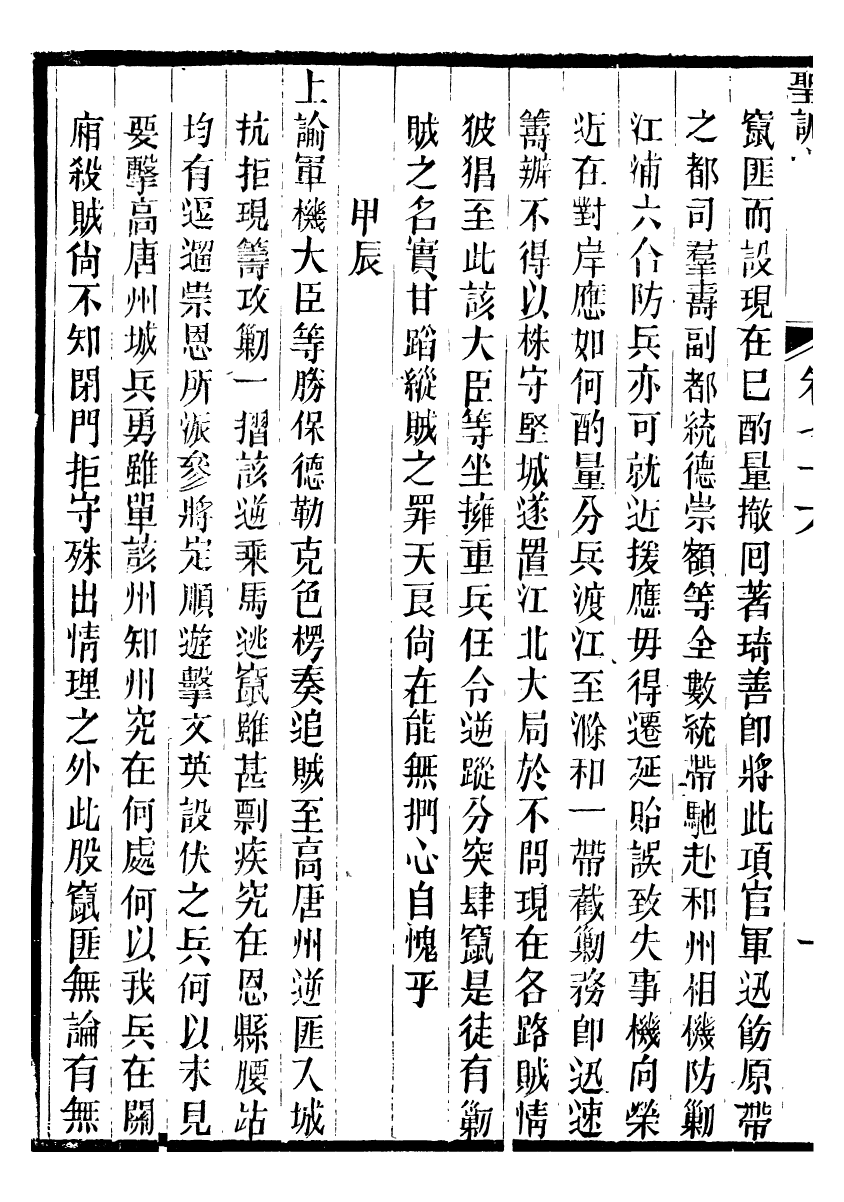 聖訓
竄匪而設現在已酌量撤回著琦善卽將此項官軍迅飭原帶
之都司羣壽副都統德崇額等全數統帶馳赴和州相機防勦
江浦六合防兵亦可就近援應毋得遷延貽誤致失事機向榮
近在對岸應如何酌量分兵渡江至滁和一帶截勦務卽迅速
籌辦不得以株守堅城遂置江北大局於不問現在各路賊情
狓猖至此該大臣等坐擁重兵任令逆蹤分突肆竄是徒有勦
賊之名實甘蹈縱賊之罪天良尙在能無捫心自愧乎
甲辰
上諭軍機大臣等勝保德勒克色楞奏追賊至高唐州逆匪入城
抗拒現籌攻勦一摺該逆乘馬逃竄雖甚剽疾究在恩縣腰站
均有逗遛崇恩所派參將定順遊擊文英設伏之兵何以未見
要擊高唐州城兵勇雖單該州知州究在何處何以我兵在關
廂殺賊尙不知閉門拒守殊出情理之外此股竄匪無論有無